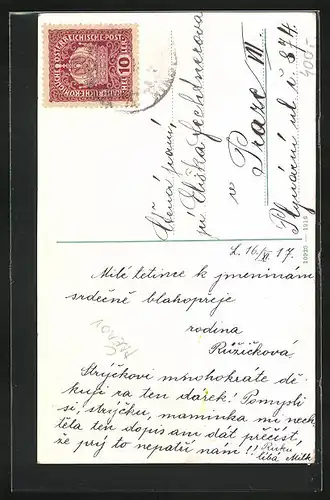 KAISERLICHE KÖNIGLICHE ÖSTERREICHISCHE POST
10 HELLER 10
Ctěná paní
pí Eliška Lechtnerova
v
Praze III
Plynární ul. č 874
400-
10920 — 1916
L. 16/XI 17.
Milé tetince k jmeninám
srdečně blahopřeje
rodina
Růžičková
Strýčkovi mnohokráte dě-
kuji za ten dárek! Pomysli
si, strýčku, maminka mi nech-
těla ten dopis ani dát přečíst,
že prý to nepatří nám!! Ruku
líbá Milk.